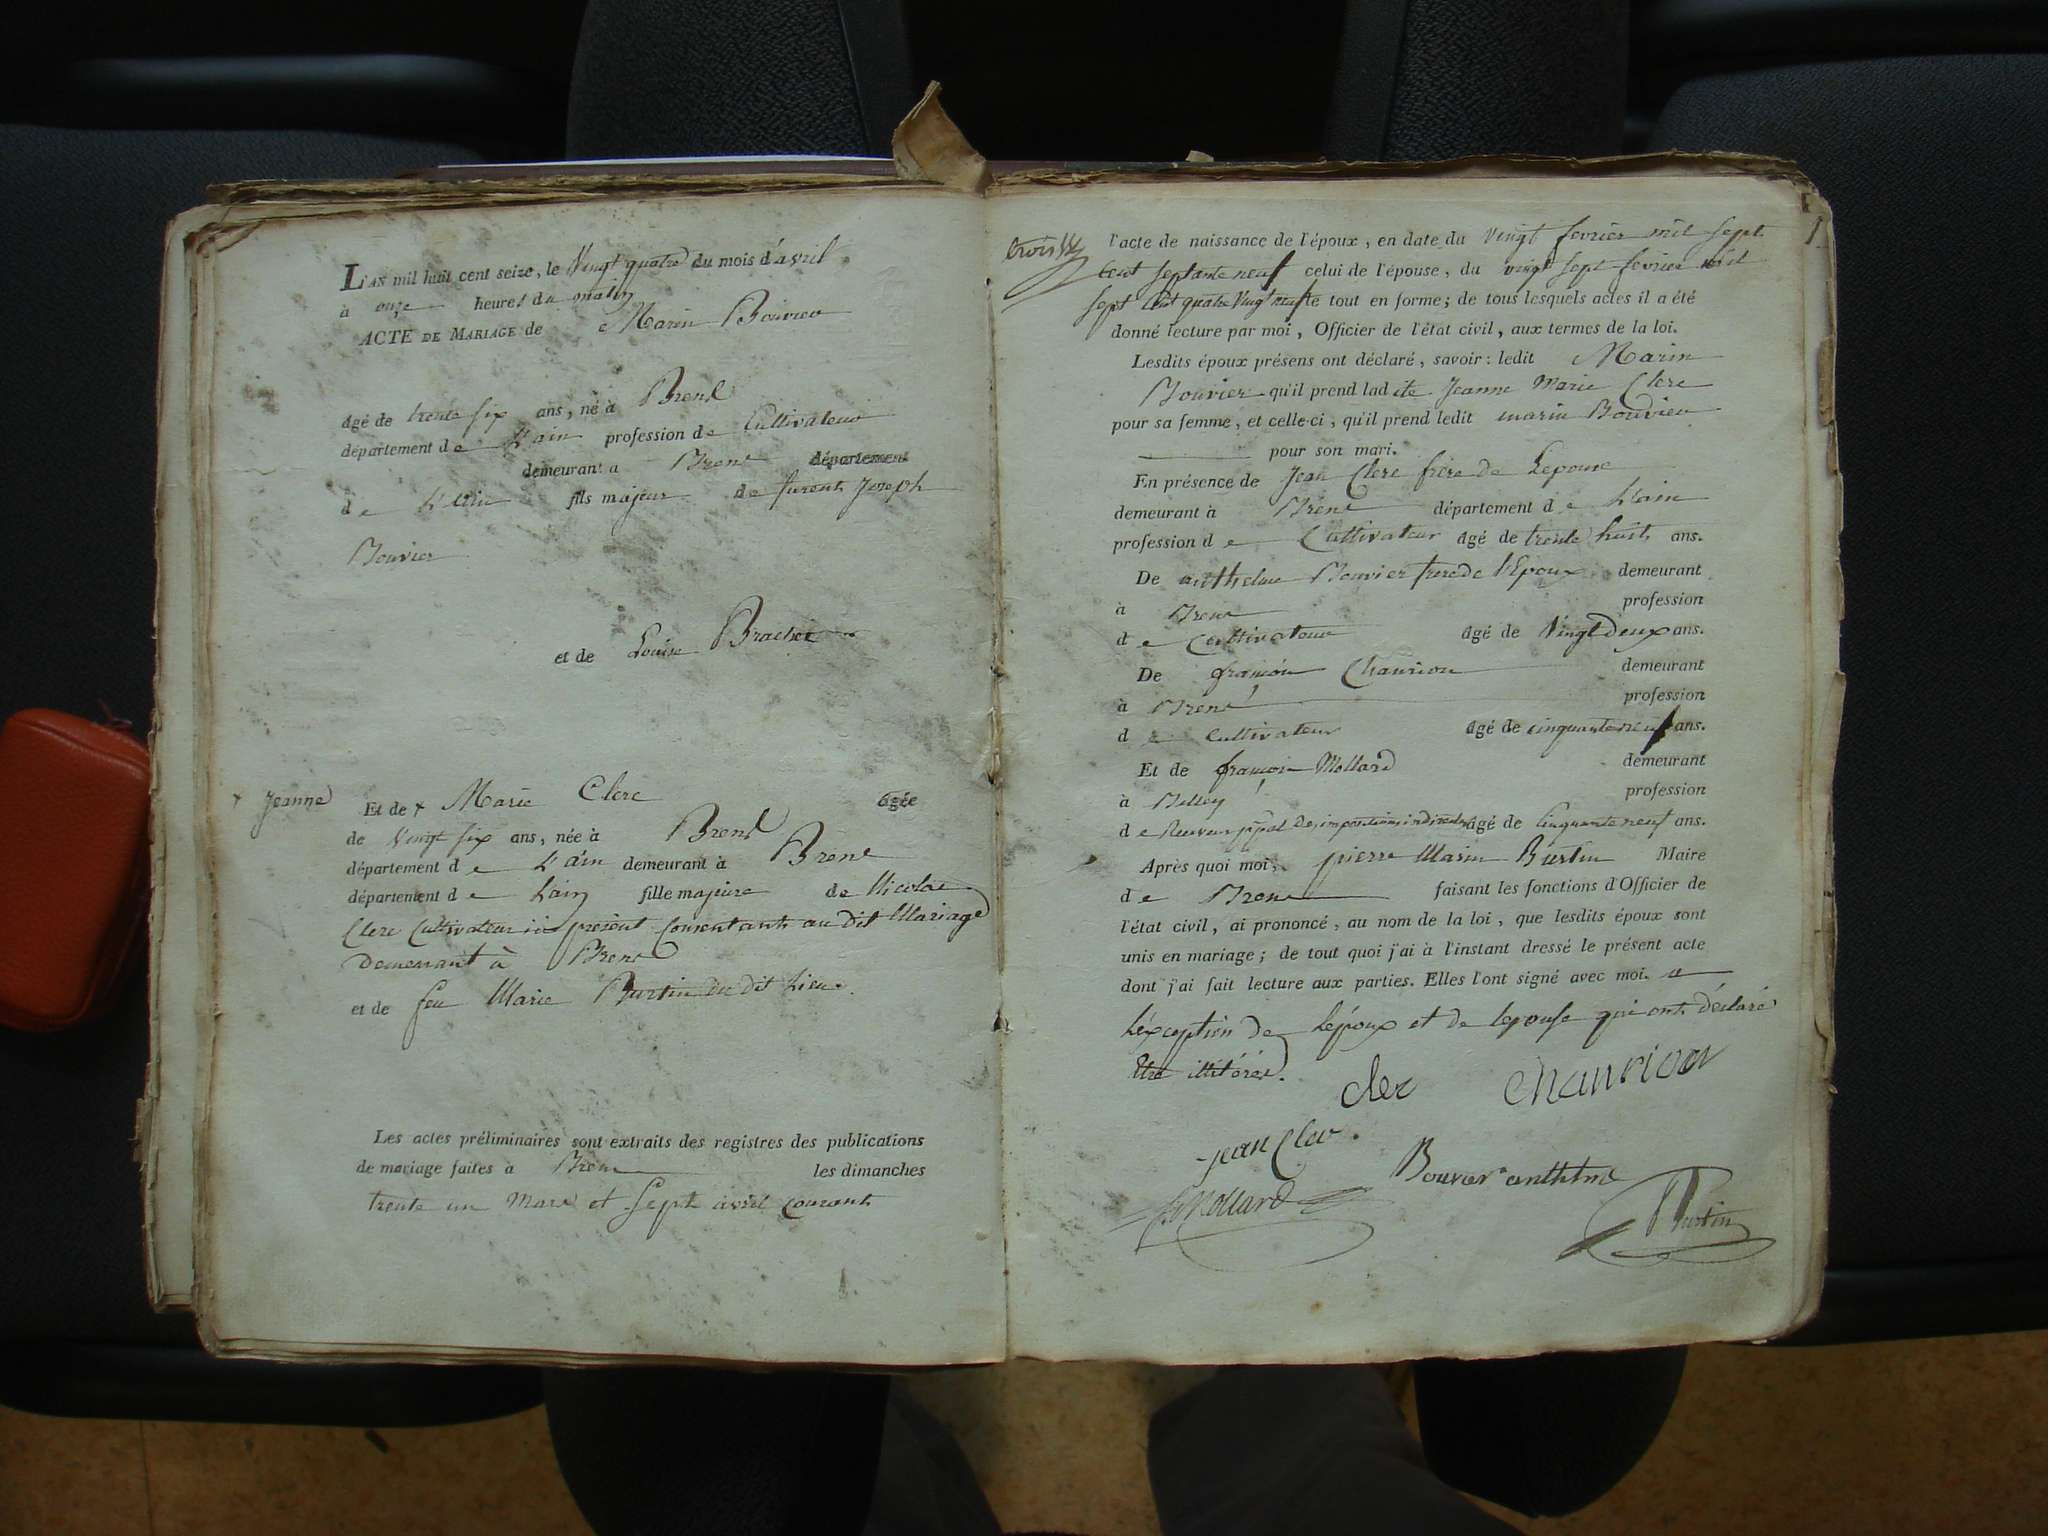 L'AN mil huit cent seize, le Vingt quatre du mois d'avril
à onze heures du matin
ACTE DE MARIAGE de Marin Bouvier
âgé de trente six ans, né à Brens
département de L'ain profession de Cultivateur
demeurant a Brens département
de L'ain fils majeur de Joseph
Bouvier
et de Louise Brachet
Jeanne
Et de + Marie Clerc agée
de Vingt six ans, née à Brens
département de L'ain demeurant à Brens
département de Lain fille majeure de Nicolas
Clerc Cultivateur ici présent Consentant au dit Mariage
demeurant à Brens
et de feu Marie Burtin du dit Lieu.
Les actes préliminaires sont extraits des registres des publications
de mariage faites à Brens les dimanches
trente un Mars et Sept avril Courant
l'acte de naissance de l'époux, en date du vingt fevrier mil sept
Cent septante neuf celui de l'épouse, du vingt sept fevrier mil
sept Cent quatre Vingt neuf le tout en forme; de tous lesquels actes il a été
donné lecture par moi, Officier de l'état civil, aux termes de la loi.
Lesdits époux présens ont déclaré, savoir: ledit Marin
Bouvier qu'il prend ladite Jeanne Marie Clerc
pour sa femme, et celle-ci, qu'il prend ledit marin Bouvier
pour son mari.
En présence de Jean Clerc frère de Lepouse
demeurant à Brens département de Lain
profession de Cultivateur âgé de trente huit ans.
De anthelme Bouvier frere de l'Epoux demeurant
à Brens profession
de Cultivateur âgé de Vingt Deux ans.
De françois Chaurion demeurant
à Brens profession
de Cultivateur âgé de cinquante neuf ans.
Et de françois Mollard demeurant
à Belley profession
de Receveur ppal Des impositions indirectes âgé de Cinquante neuf ans.
Après quoi moi, pierre Marin Burtin Maire
de Brens faisant les fonctions d'Officier de
l'état civil, ai prononcé, au nom de la loi, que lesdits époux sont
unis en mariage; de tout quoi j'ai à l'instant dressé le présent acte
dont j'ai fait lecture aux parties. Elles l'ont signé avec moi. a
Léxception de Lépoux et de lepouse qui ont déclaré
être illitérés.
clerc chaurion
jean Clerc.
Bouvier anthelme
Mollard
Burtin